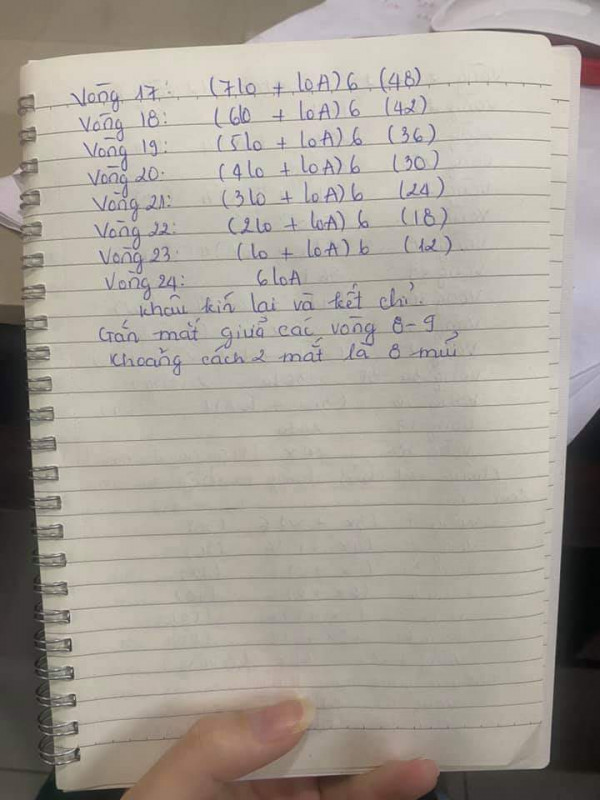 Vòng 17: (7lo + loA) 6 (48)
Vòng 18: (6lo + loA) 6 (42)
Vòng 19: (5lo + loA) 6 (36)
Vòng 20: (4lo + loA) 6 (30)
Vòng 21: (3lo + loA) 6 (24)
Vòng 22: (2lo + loA) 6 (18)
Vòng 23: (lo + loA) 6 (12)
Vòng 24: 6loA
khâu kín lại và kết chỉ.
Gắn mắt giữa các vòng 8-9
Khoảng cách 2 mắt là 8 mũi